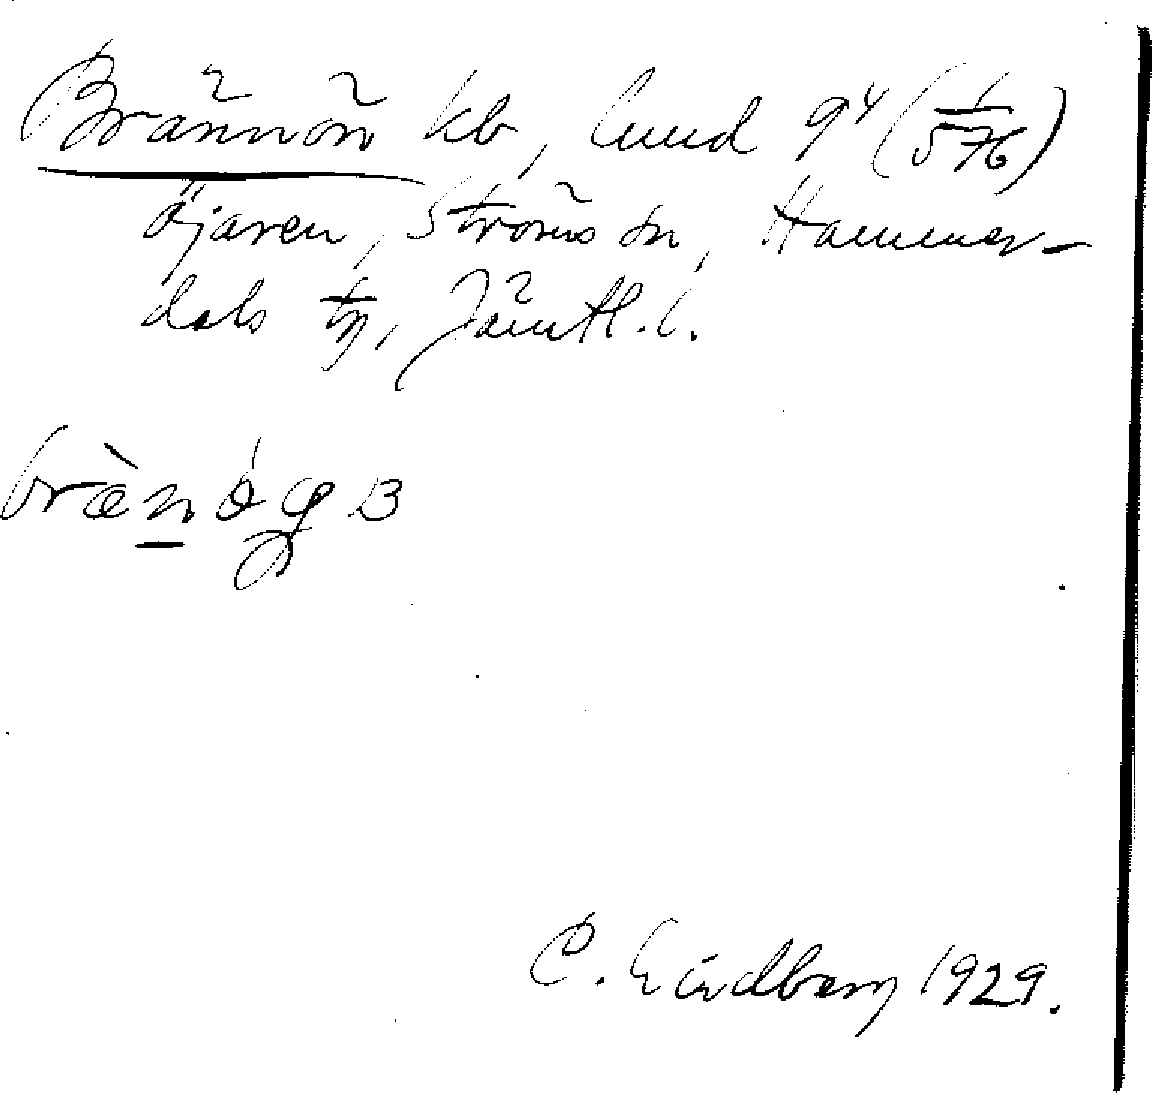 Brännön kb, lund 9⁴ (1/576)
Öjaren, Ströms sn, Hammer-
dals tg, Jämtl. l.
C. Lindberg 1929.